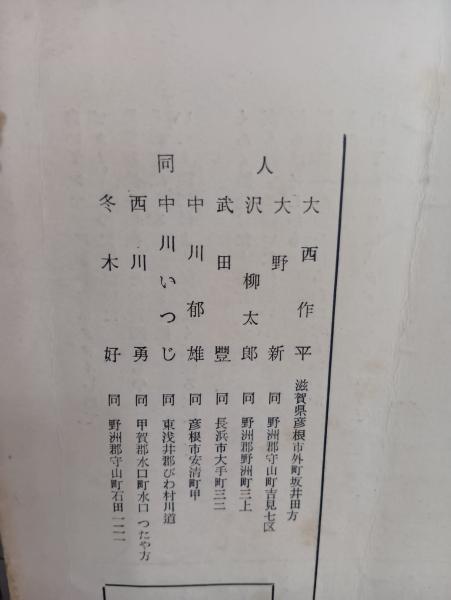 同人
大西作平 滋賀県彦根市外町坂井田方
大野新 同 野洲郡守山町吉見七区
沢柳太郎 同 野洲郡野洲町三上
武田豊 同 長浜市大手町三二
中川郁雄 同 彦根市安清町甲
中川いつじ 同 東浅井郡びわ村川道
西川勇 同 甲賀郡水口町水口つたや方
冬木好 同 野洲郡守山町石田一二一